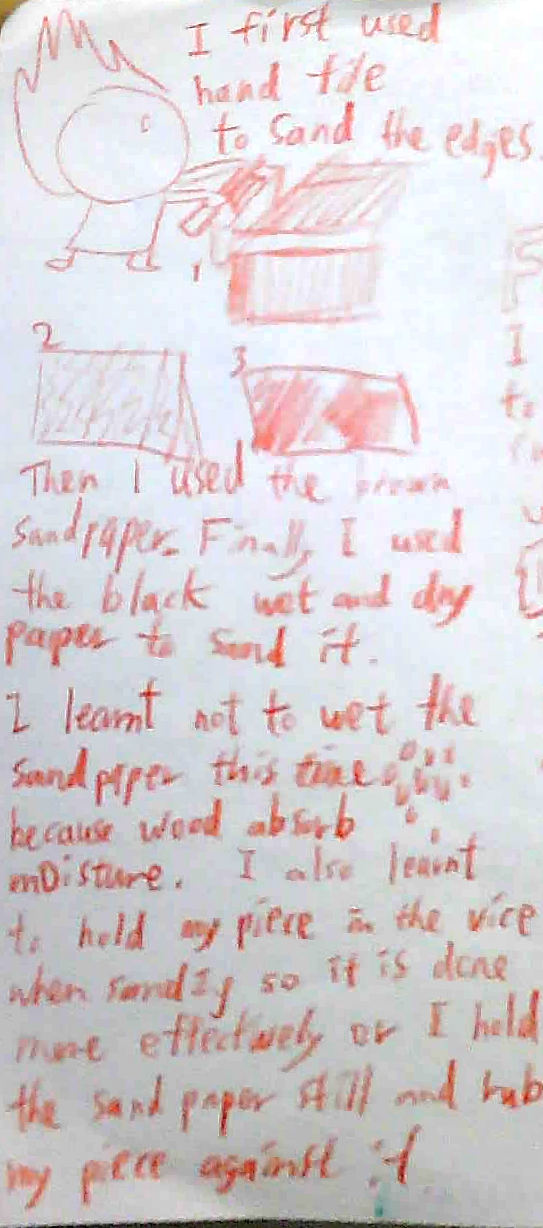 I first used
hand file
to sand the edges.
1
2
3
Then I used the brown
sandpaper. Finally I used
the black wet and dry
paper to sand it.
I learnt not to wet the
sandpaper this time
because wood absorb
moisture. I also learnt
to hold my piece in the vice
when sanding so it is done
more effectively or I hold
the sand paper still and rub
my piece against it
I
to